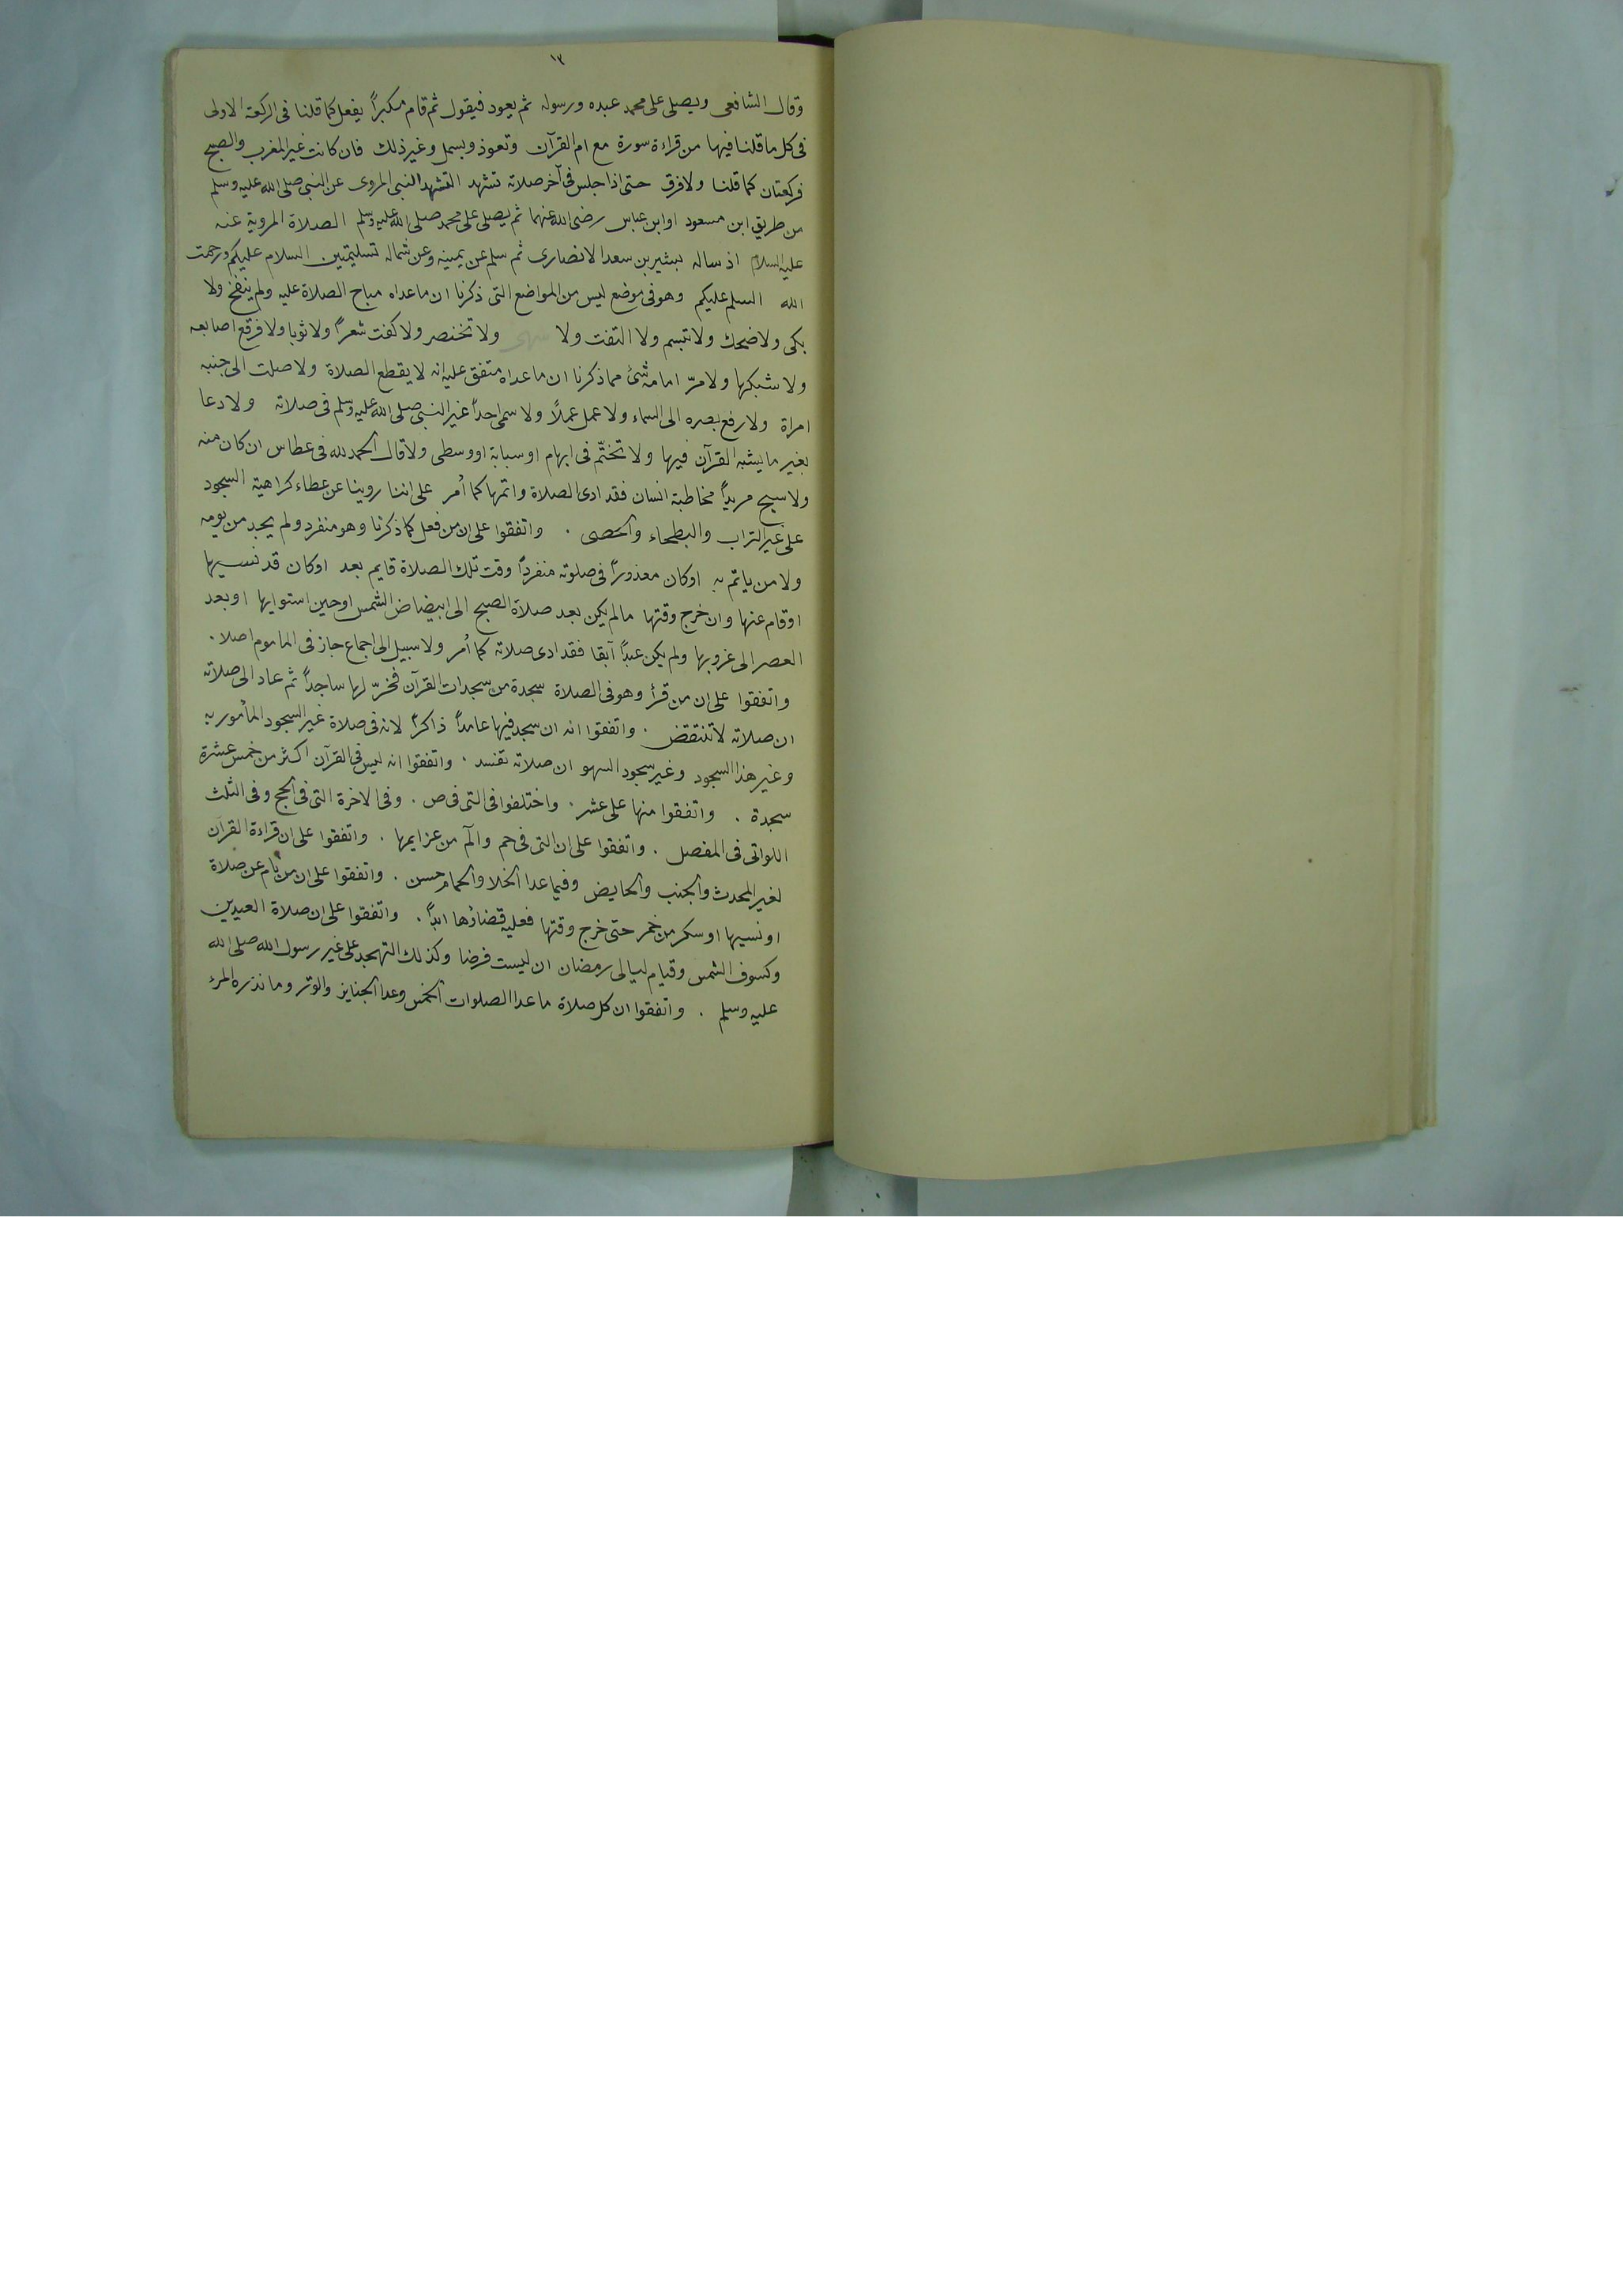 ١٣
وقال الشافعى ويصلى على محمد عبده ورسوله ثم يعود فيقول ثم قام مكبراً يفعل كما قلنا فى الركعة الاولى
فى كل ما قلنا فيها من قراءة سورة مع ام القرآن وتعوذ وبسمل وغير ذلك فان كانت غير المغرب والصبح
فركعتان كما قلنا ولا فرق حتى اذا جلس فى آخر صلاته تشهد التشهد النبى المروى عن النبى صلى الله عليه وسلم
من طريق ابن مسعود او ابن عباس رضى الله عنهما ثم يصلى على محمد صلى الله عليه وسلم الصلاة المروية عنه
عليه السلام اذ ساله بشير بن سعد الانصارى ثم سلم عن يمينه وعن شماله تسليمتين السلام عليكم ورحمت
الله السلم عليكم وهو فى موضع ليس من المواضع التى ذكرنا ان ما عداه مباح الصلاة عليه ولم ينفخ ولا
بكى ولا ضحك ولا تبسم ولا التفت ولا ولا تخنصر ولا كفت شعراً ولا ثوبا ولا فرقع اصابعه
ولا شبكها ولا مرّ امامه شئ مما ذكرنا ان ما عداه متفق عليه انه لا يقطع الصلاة ولا صلت الى جنبه
امراة ولا رفع بصره الى السماء ولا عمل عملاً ولا سمى احداً غير النبى صلى الله عليه وسلم فى صلاته ولا دعا
بغير ما يشبه القرآن فيها ولا تختّم فى ابهام او سبابة او وسطى ولا قال الحمد لله فى عطاس ان كان منه
ولا سبح مريداً مخاطبة انسان فقد ادى الصلاة واتمها كما أمر على اننا روينا عن عطاء كراهية السجود
على غير التراب والبطحاء والحصى . واتفقوا على ان من فعل كما ذكرنا وهو منفرد ولم يجد من يومه
ولا من ياتم به او كان معذوراً فى صلوته منفرداً وقت تلك الصلاة قايم بعد او كان قد نسيها
او قام عنها وان خرج وقتها ما لم يكن بعد صلاة الصبح الى ابيضاض الشمس او حين استوايها او بعد
العصر الى غروبها ولم يكن عبداً آبقا فقد ادى صلاته كما أمر ولا سبيل الى اجماع جاز فى الماموم اصلا .
واتفقوا على ان من قرأ وهو فى الصلاة سجدة من سجدات القرآن فخرّ لها ساجداً ثم عاد الى صلاته
ان صلاته لا تنتقض . واتفقوا انه ان سجد فيها عامداً ذاكراً لانه فى صلاة غير السجود المأمور به
وغير هذا السجود وغير سجود السهو ان صلاته تفسد . واتفقوا انه ليس فى القرآن اكثر من خمس عشرة
سجدة . واتفقوا منها على عشر . واختلفوا فى التى فى ص . وفى الاخرة التى فى الحج وفى الثلث
اللواتى فى المفصل . واتفقوا على ان التى فى حم والٓم من عزايمها . واتفقوا على ان قراءة القرآن
لغير المحدث والجنب والحايض وفيما عدا الخلا والحمام حسن . واتفقوا على ان من نام عن صلاة
او نسيها او سكر من خمر حتى خرج وقتها فعليه قضاؤها ابداً . واتفقوا على ان صلاة العيدين
وكسوف الشمس وقيام ليالى رمضان ان ليست فرضا وكذلك التهجد على غير رسول الله صلى الله
عليه وسلم . واتفقوا ان كل صلاة ما عدا الصلوات الخمس وعدا الجنايز والوتر وما نذره المرء